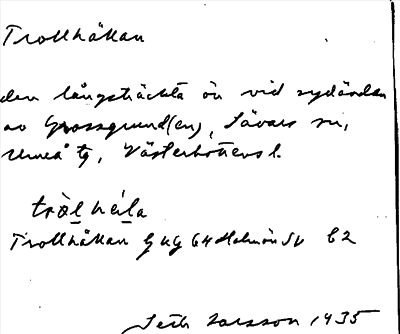 Trollhällan
den långsträckta ön vid sydändan
av Grossgrund(en), Sävars sn,
Umeå tg, Västerbottens l.
Trollhällan G kg 64 Holmön SV C2
Seth Larsson 1935